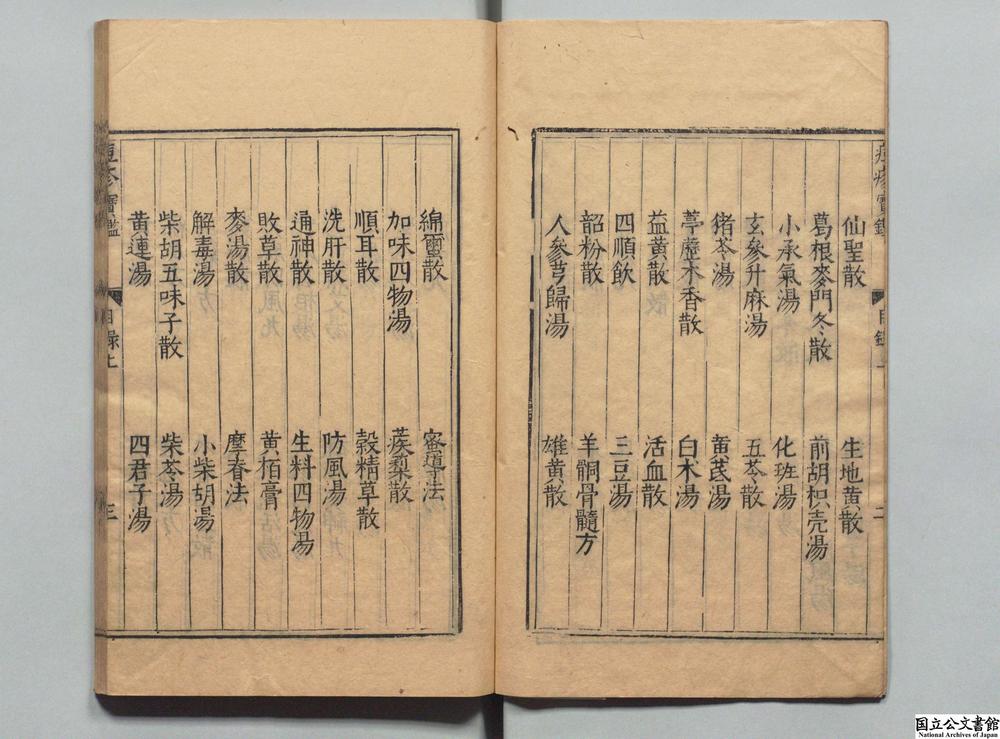 仙聖散 生地黄散
葛根麥門冬散 前胡枳壳湯
小承氣湯 化班湯
玄參升麻湯 五苓散
猪苓湯 黄芪湯
葶藶木香散 白木湯
益黄散 活血散
四順飲 三豆湯
韶粉散 羊䯊骨髓方
人參芎歸湯 雄黄散
目錄上 二
綿蠒散 宻導法
加味四物湯 蒺藜散
順耳散 榖精草散
洗肝散 防風湯
通神散 生料四物湯
敗草散 黄栢膏
麥湯散 摩脊法
解毒湯 小柴胡湯
柴胡五味子散 柴苓湯
黄連湯 四君子湯
痘疹寶鑑 目錄上 三
国立公文書館
National Archives of Japan